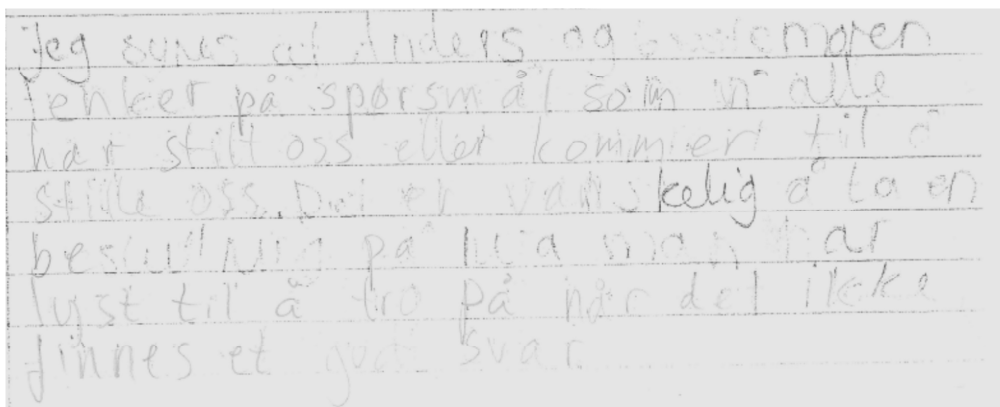 Jeg synes at Anders og bestemoren
tenker på spørsmål som vi alle
har stilt oss eller kommer til å
stille oss. Det er vanskelig å ta en
beslutning på hva man har
lyst til å tro på når det ikke
finnes et svar.